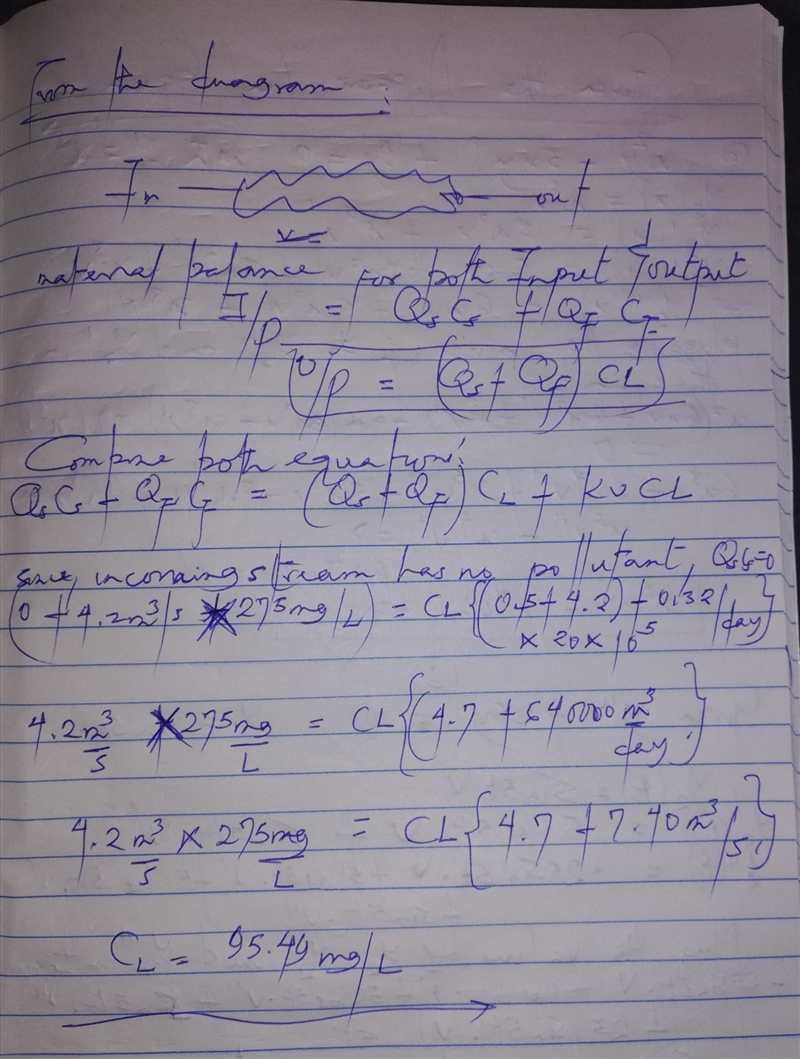 From the diagram:
In out
V=
material balance for both Input & output
I/p = QsCs + QF CF
O/p = (Qs + QF) CL}
Combine both equation:
QsCs + QF CF = (Qs + QF) CL + KV CL
Since, incoming stream has no pollutant, QsCs=0
(0 + 4.2m³/s × 275mg/L) = CL{(0.5+4.2) + 0.32/day}
× 20 × 10⁵
4.2m³/s × 275mg/L = CL{(4.7 + 640000 m³/day}
4.2m³/s × 275mg/L = CL{4.7 + 7.40m³/s}
CL = 95.49 mg/L